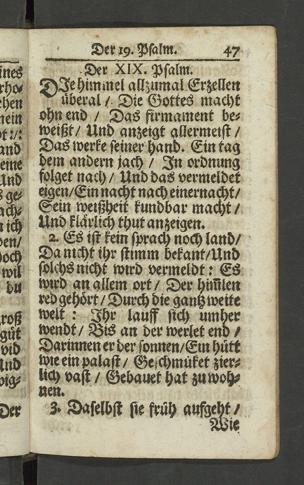 Der 19. Psalm. 47
Der XIX. Psalm.
DJe himmel allzumal Erzellen
überal / Die Gottes macht
ohn end / Das firmament be-
weißt / Und anzeigt allermeist /
Das werke seiner hand. Ein tag
dem andern jach / In ordnung
folget nach / Und das vermeldet
eigen / Ein nacht nach einer nacht /
Sein weißheit kundbar macht /
Und klärlich thut anzeigen.
2. Es ist kein sprach noch land /
Da nicht ihr stimm bekant / Und
solchs nicht wird vermeldt : Es
wird an allem ort / Der him̃len
red gehört / Durch die gantz weite
welt : Ihr lauff sich umher
wendt / Bis an der werlet end /
Darinnen er der sonnen / Ein hütt
wie ein palast / Geschmüket zier-
lich vast / Gebauet hat zu woh-
nen.
3. Daselbst sie früh aufgeht /
Wie